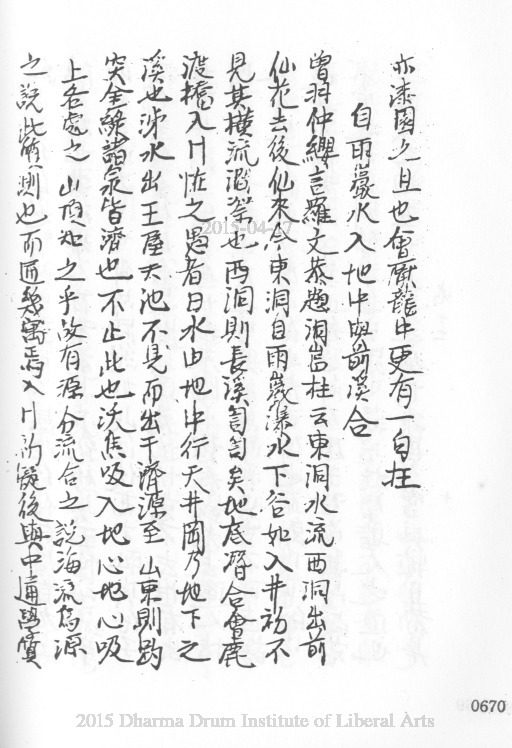 亦漆園之且也會厭龍中更有一自在
自雨巖水入地中與前溪合
曾羽仲纓言羅文蔡題洞嵩柱云東洞水流西洞出前
仙花去後仙來令東洞自雨巖瀑水下谷如入井初不
見其橫流澗壑也西洞則長溪訇訇矣地底潛合會鹿
渡橋入川怪之愚者曰水由地中行天井岡乃地下之
溪也涉水出王屋天池不見而出于濟源至山東則趵
突金線諸泉皆濟也不止此也沃焦吸入地心地心吸
上各處之山頂知之乎故有源分流合之說海流為源
之說此測也而通幾寓焉入川所疑後與中通學質
2015-04-17
0670
2015 Dharma Drum Institute of Liberal Arts